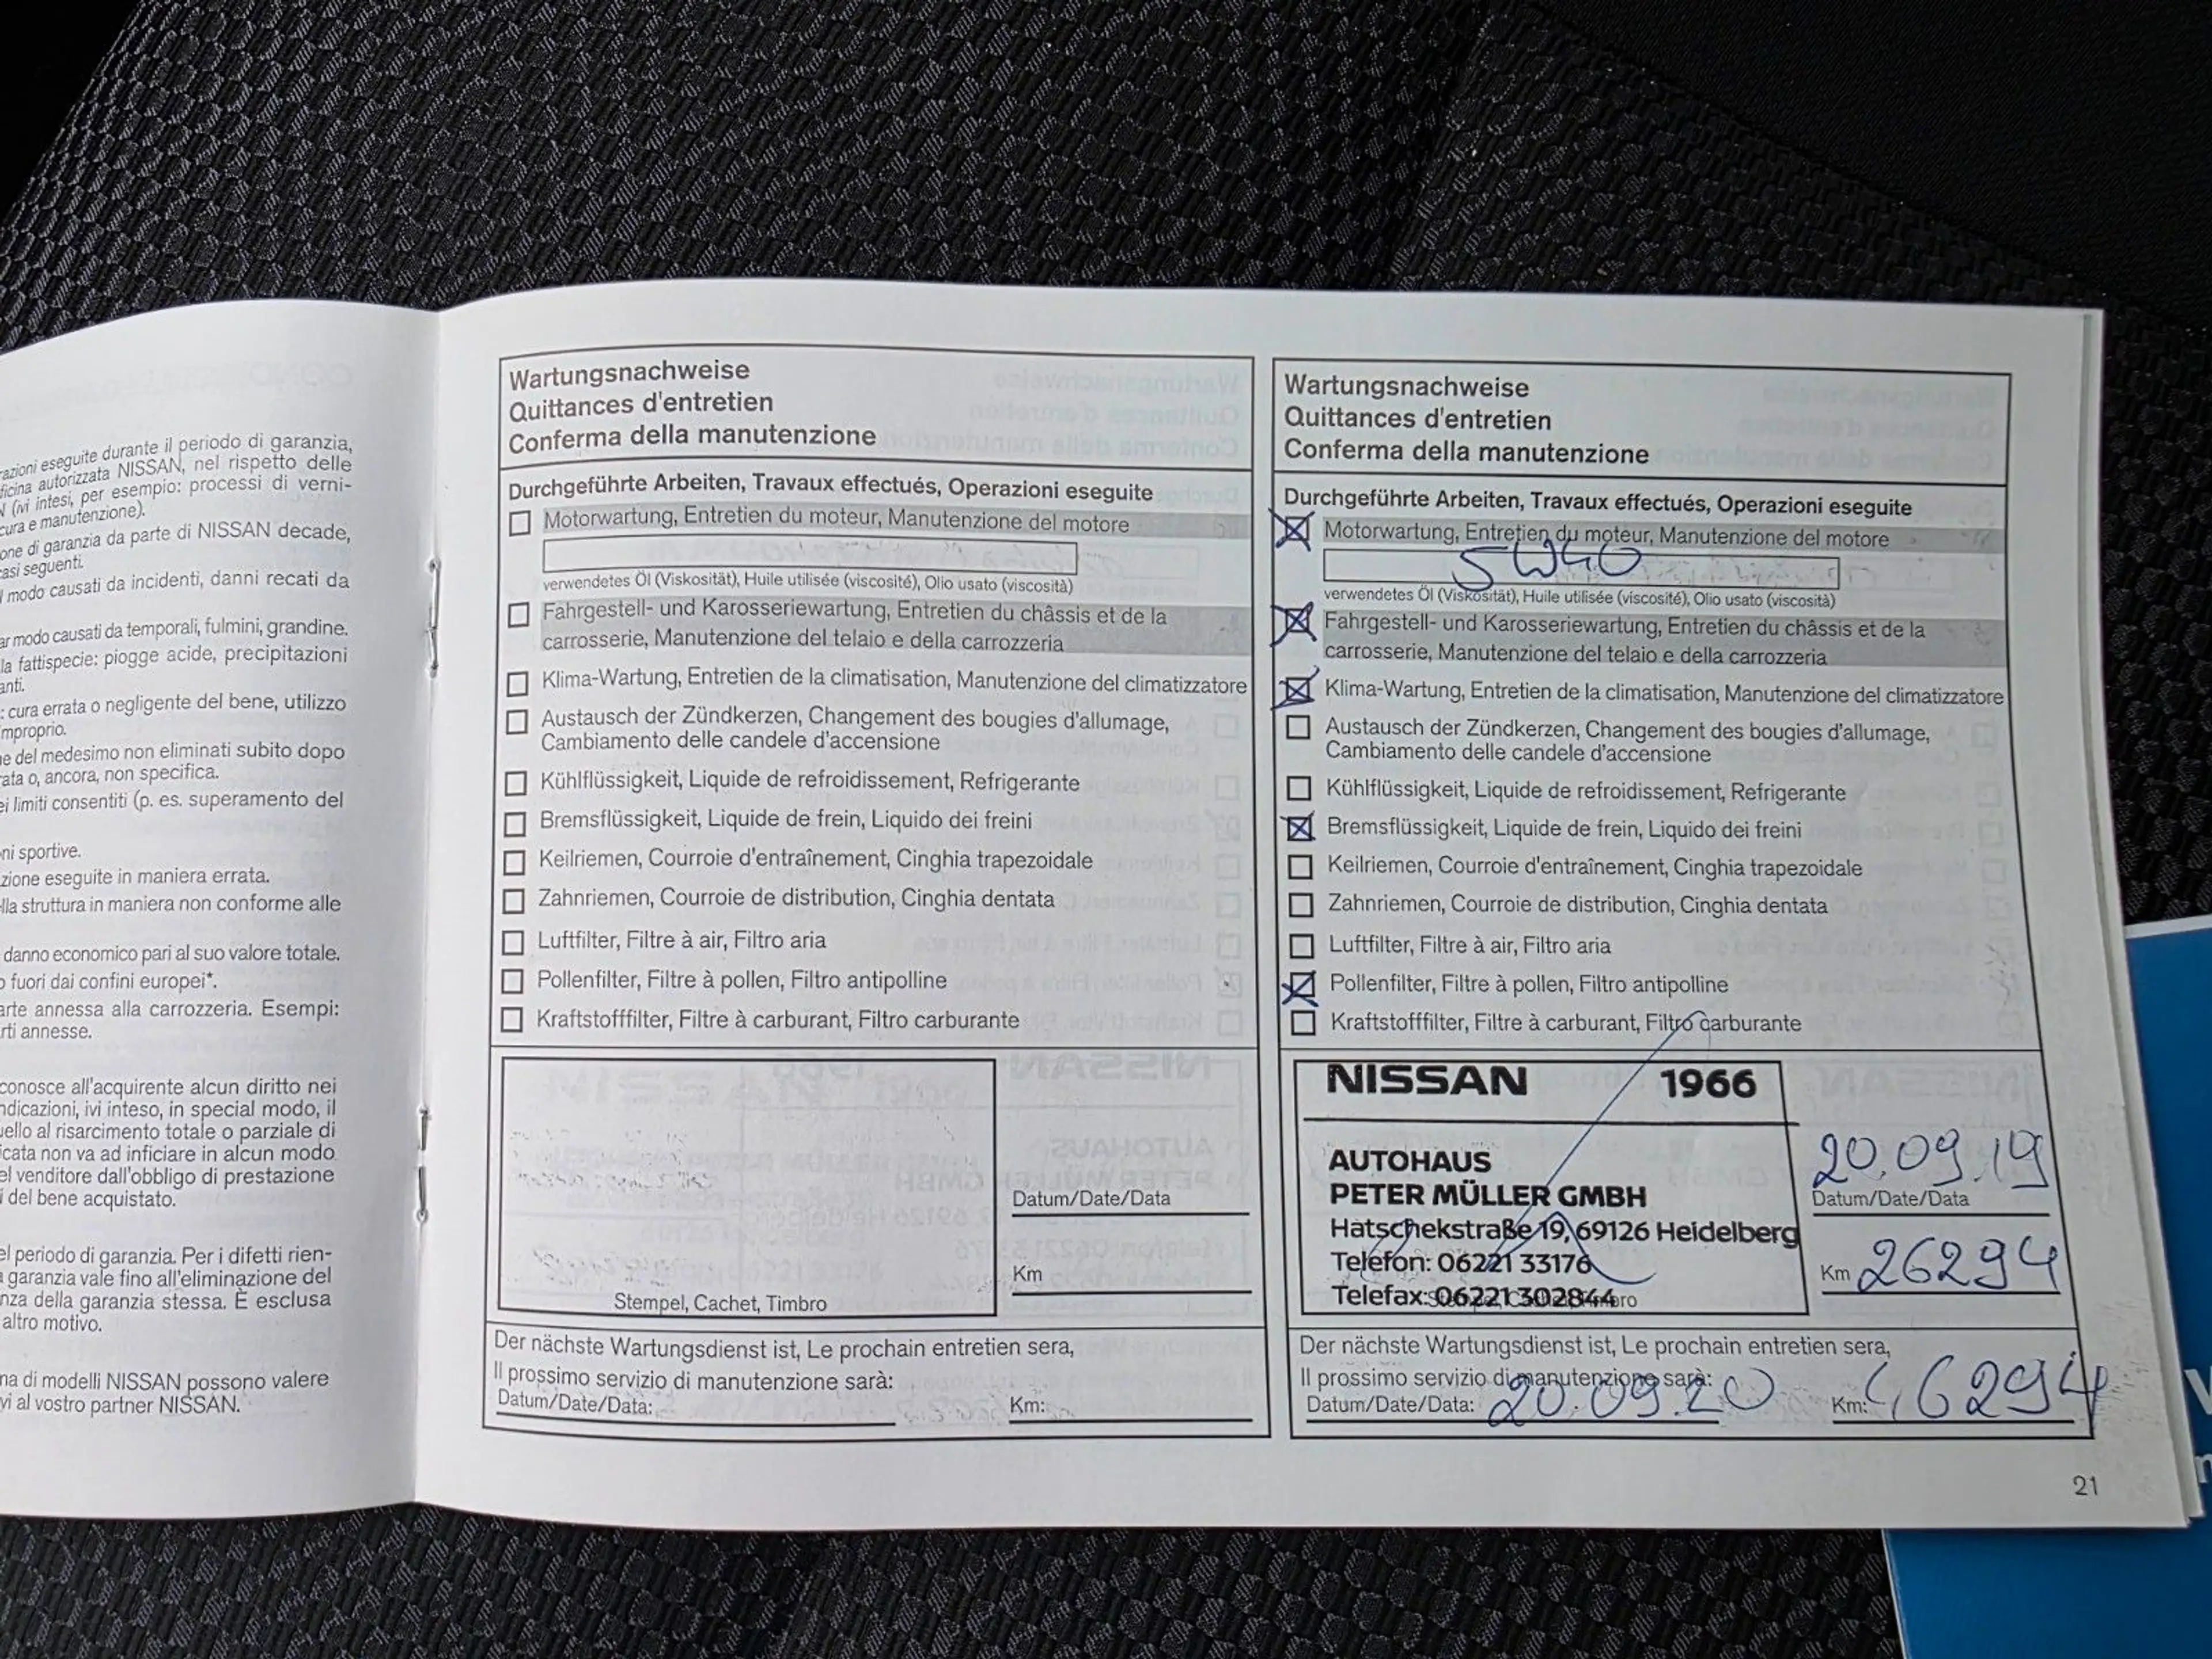 razioni eseguite durante il periodo di garanzia,
ficina autorizzata NISSAN, nel rispetto delle
(ivi intesi, per esempio: processi di verni-
cura e manutenzione).
one di garanzia da parte di NISSAN decade,
asi seguenti.
modo causati da incidenti, danni recati da
ar modo causati da temporali, fulmini, grandine.
la fattispecie: piogge acide, precipitazioni
anti.
: cura errata o negligente del bene, utilizzo
mproprio.
e del medesimo non eliminati subito dopo
rata o, ancora, non specifica.
ei limiti consentiti (p. es. superamento del
ni sportive.
zione eseguite in maniera errata.
lla struttura in maniera non conforme alle
danno economico pari al suo valore totale.
o fuori dai confini europei*.
arte annessa alla carrozzeria. Esempi:
rti annesse.
conosce all'acquirente alcun diritto nei
ndicazioni, ivi inteso, in special modo, il
uello al risarcimento totale o parziale di
icata non va ad inficiare in alcun modo
el venditore dall'obbligo di prestazione
i del bene acquistato.
el periodo di garanzia. Per i difetti rien-
a garanzia vale fino all'eliminazione del
nza della garanzia stessa. È esclusa
altro motivo.
na di modelli NISSAN possono valere
vi al vostro partner NISSAN.
Wartungsnachweise
Quittances d'entretien
Conferma della manutenzione
Durchgeführte Arbeiten, Travaux effectués, Operazioni eseguite
Motorwartung, Entretien du moteur, Manutenzione del motore
verwendetes Öl (Viskosität), Huile utilisée (viscosité), Olio usato (viscosità)
Fahrgestell- und Karosseriewartung, Entretien du châssis et de la
carrosserie, Manutenzione del telaio e della carrozzeria
Klima-Wartung, Entretien de la climatisation, Manutenzione del climatizzatore
Austausch der Zündkerzen, Changement des bougies d'allumage,
Cambiamento delle candele d'accensione
Kühlflüssigkeit, Liquide de refroidissement, Refrigerante
Bremsflüssigkeit, Liquide de frein, Liquido dei freini
Keilriemen, Courroie d'entraînement, Cinghia trapezoidale
Zahnriemen, Courroie de distribution, Cinghia dentata
Luftfilter, Filtre à air, Filtro aria
Pollenfilter, Filtre à pollen, Filtro antipolline
Kraftstofffilter, Filtre à carburant, Filtro carburante
Datum/Date/Data
Km
Stempel, Cachet, Timbro
Der nächste Wartungsdienst ist, Le prochain entretien sera,
Il prossimo servizio di manutenzione sarà:
Datum/Date/Data: Km:
Wartungsnachweise
Quittances d'entretien
Conferma della manutenzione
Durchgeführte Arbeiten, Travaux effectués, Operazioni eseguite
Motorwartung, Entretien du moteur, Manutenzione del motore
5W40
verwendetes Öl (Viskosität), Huile utilisée (viscosité), Olio usato (viscosità)
Fahrgestell- und Karosseriewartung, Entretien du châssis et de la
carrosserie, Manutenzione del telaio e della carrozzeria
Klima-Wartung, Entretien de la climatisation, Manutenzione del climatizzatore
Austausch der Zündkerzen, Changement des bougies d'allumage,
Cambiamento delle candele d'accensione
Kühlflüssigkeit, Liquide de refroidissement, Refrigerante
Bremsflüssigkeit, Liquide de frein, Liquido dei freini
Keilriemen, Courroie d'entraînement, Cinghia trapezoidale
Zahnriemen, Courroie de distribution, Cinghia dentata
Luftfilter, Filtre à air, Filtro aria
Pollenfilter, Filtre à pollen, Filtro antipolline
Kraftstofffilter, Filtre à carburant, Filtro carburante
NISSAN 1966
AUTOHAUS
PETER MÜLLER GMBH
Hatschekstraße 19, 69126 Heidelberg
Telefon: 06221 33176
Telefax: 06221 302844
20.09.19
Datum/Date/Data
Km 26294
Der nächste Wartungsdienst ist, Le prochain entretien sera,
Il prossimo servizio di manutenzione sarà:
Datum/Date/Data: 20.09.20 Km: 46294
21